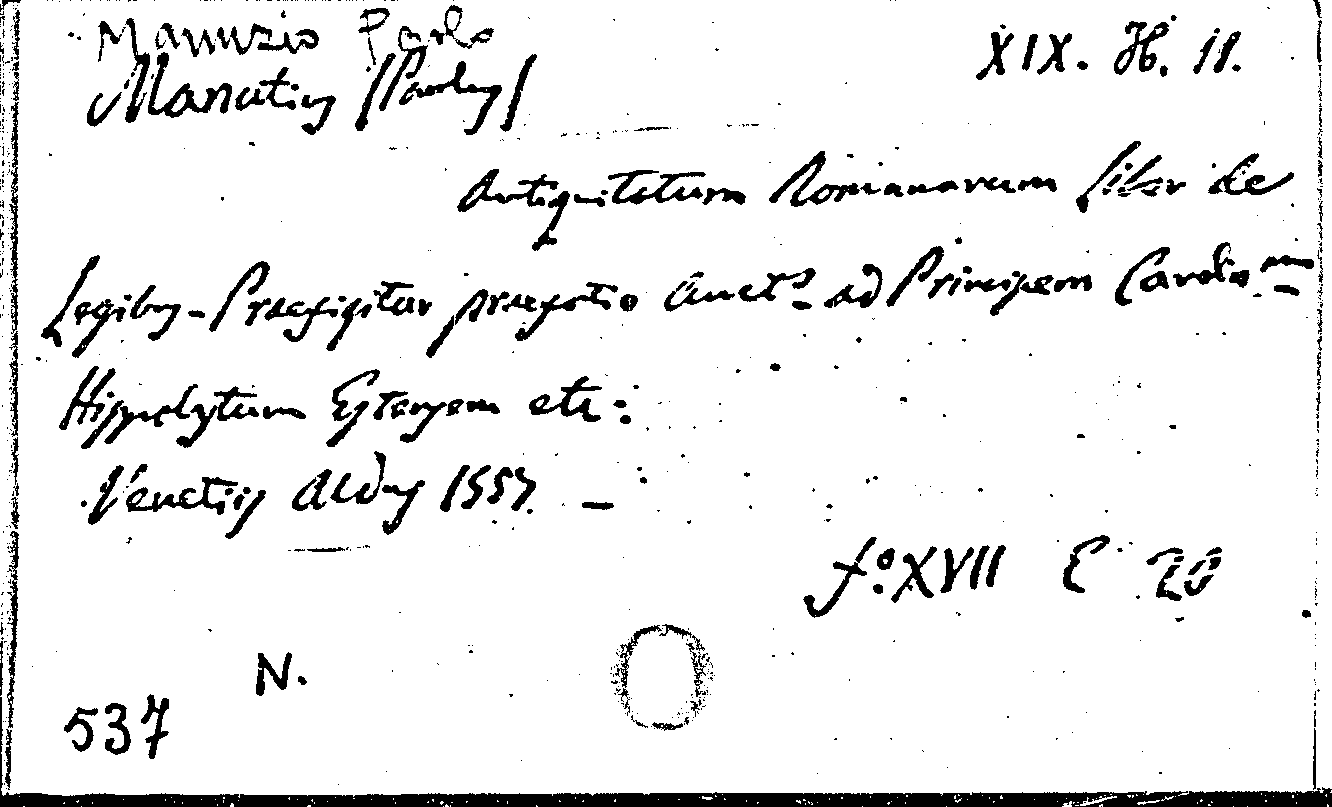 Manuzio Paolo
Manutius (Paulus) XIX. H. 11.
Antiquitatum Romanarum Liber de
Legibus - Praefigitur praefatio Auct.s ad Principem Cardin
Hippolytum Estensem etc:
Venetiis Aldus 1557. -
f.o XVII C 20
N.
537